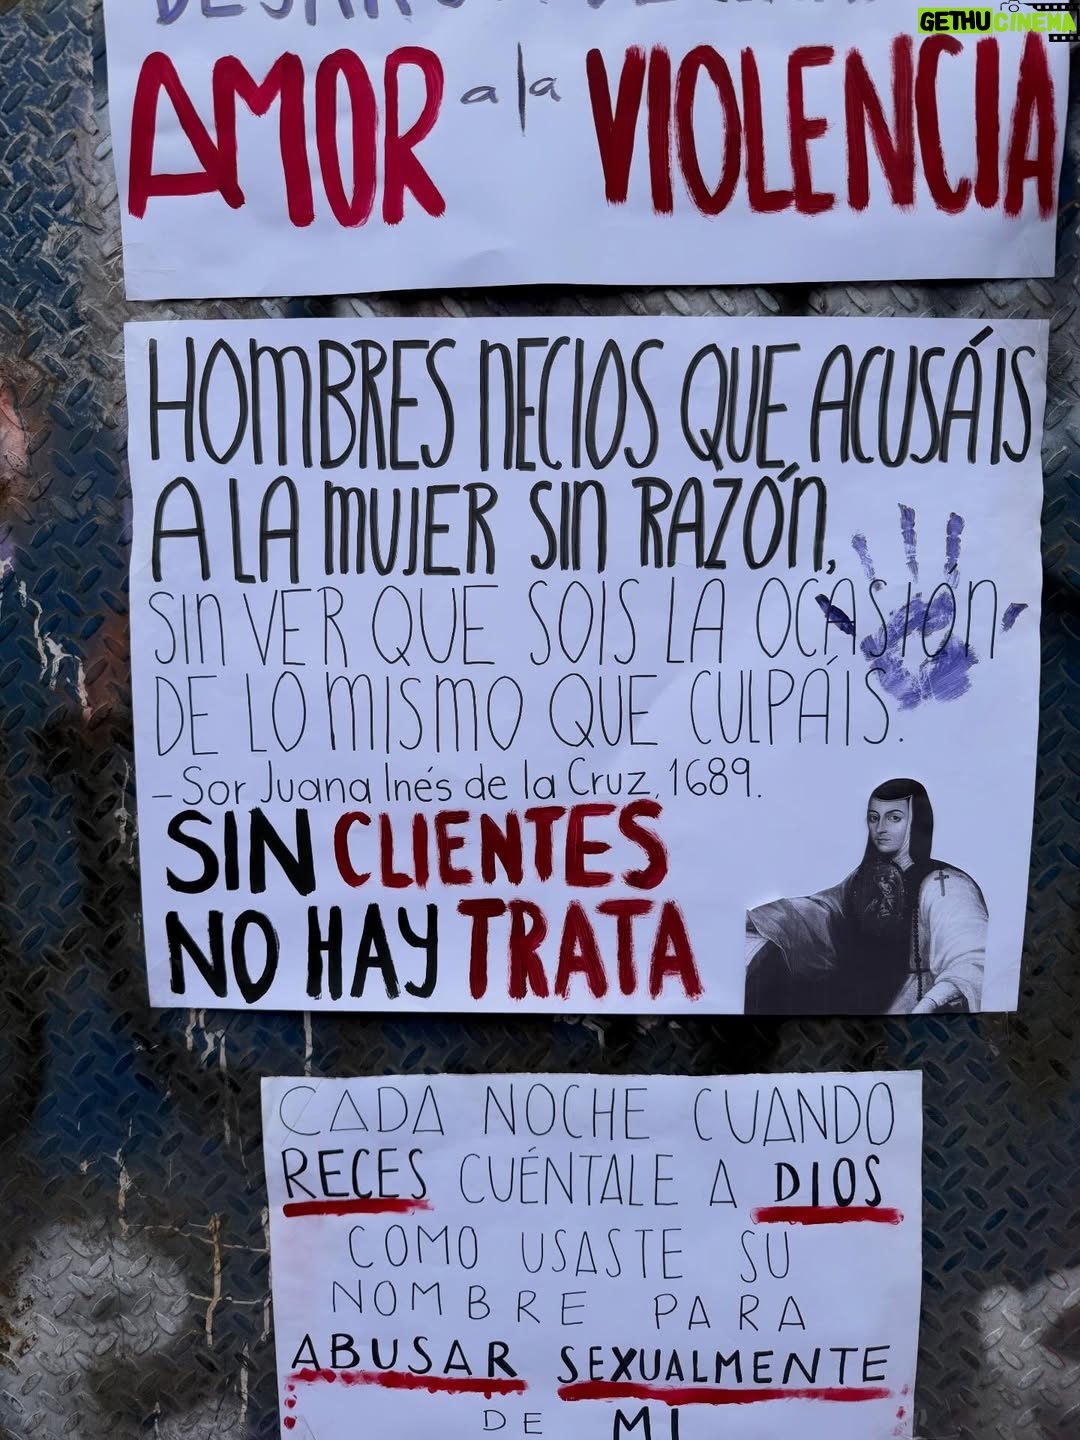 GETHUCINEMA
AMOR a la VIOLENCIA
HOMBRES NECIOS QUE ACUSÁIS
A LA MUJER SIN RAZÓN,
SIN VER QUE SOIS LA OCASIÓN
DE LO MISMO QUE CULPÁIS.
- Sor Juana Inés de la Cruz, 1689.
SIN CLIENTES
NO HAY TRATA
CADA NOCHE CUANDO
RECES CUÉNTALE A DIOS
COMO USASTE SU
NOMBRE PARA
ABUSAR SEXUALMENTE
DE MI